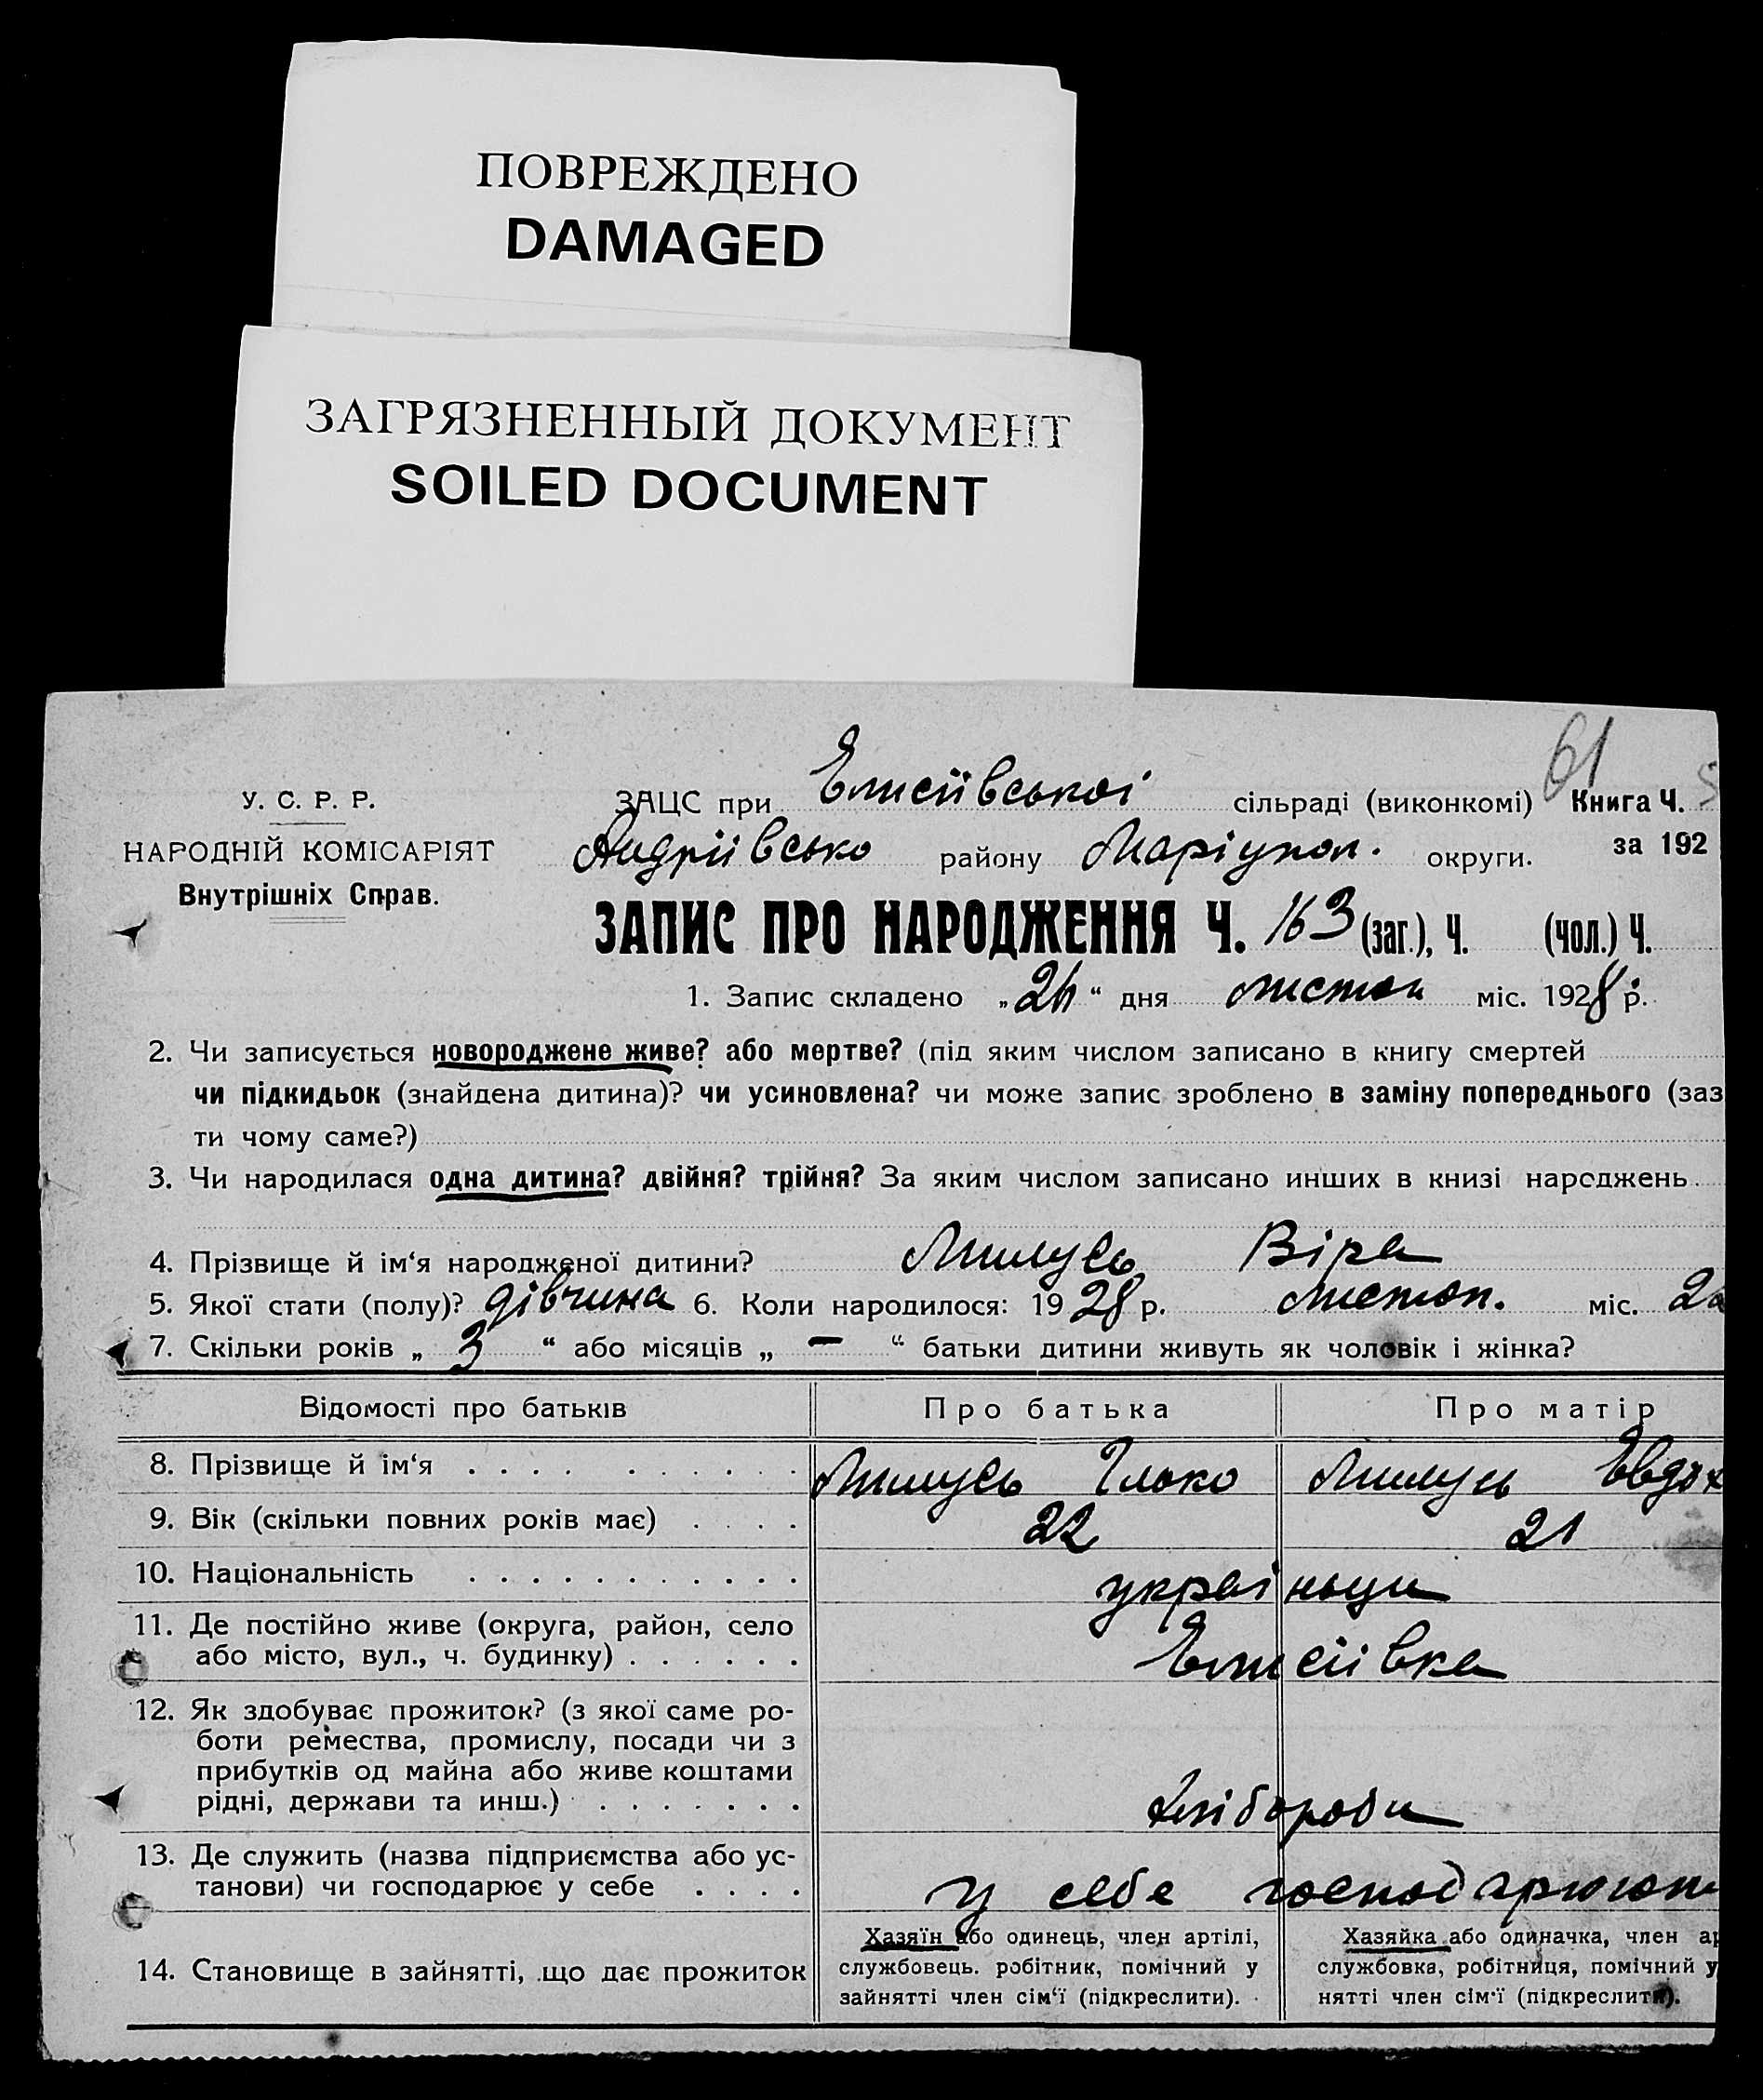 ПОВРЕЖДЕНО
DAMAGED
ЗАГРЯЗНЕННЫЙ ДОКУМЕНТ
SOILED DOCUMENT
61
У. С. Р. Р.
НАРОДНІЙ КОМІСАРІЯТ
Внутрішніх Справ.
ЗАЦС при Єлисеївської сільраді (виконкомі) Книга Ч.
Андріївсько району Маріупол. округи. за 192
ЗАПИС ПРО НАРОДЖЕННЯ Ч. 163 (заг.), Ч. (чол.) Ч.
1. Запис складено „ “ дня листоп міс. 1928 р.
2. Чи записується новороджене живе? або мертве? (під яким числом записано в книгу смертей
чи підкидьок (знайдена дитина)? чи усиновлена? чи може запис зроблено в заміну попереднього (заз
ти чому саме?)
3. Чи народилася одна дитина? двійня? трійня? За яким числом записано инших в книзі народжень
4. Прізвище й ім‘я народженої дитини? Віра
5. Якої стати (полу)? дівчина 6. Коли народилося: 1928 р. листоп. міс.
7. Скільки років „ 3 “ або місяців „ — “ батьки дитини живуть як чоловік і жінка?
Відомості про батьків Про батька Про матір
8. Прізвище й ім‘я Ілько Євдок
9. Вік (скільки повних років має) 22 21
10. Національність українци
11. Де постійно живе (округа, район, село
або місто, вул., ч. будинку) Єлисеївка
12. Як здобуває прожиток? (з якої саме ро-
боти ремества, промислу, посади чи з
прибутків од майна або живе коштами
рідні, держави та инш.) хлібороби
13. Де служить (назва підприємства або ус-
танови) чи господарює у себе у себе господарюют
14. Становище в зайнятті, що дає прожиток
Хазяїн або одинець, член артілі,
службовець. робітник, помічний у
зайнятті член сім‘ї (підкреслити).
Хазяйка або одиначка, член ар
службовка, робітниця, помічний у
нятті член сім‘ї (підкреслити).